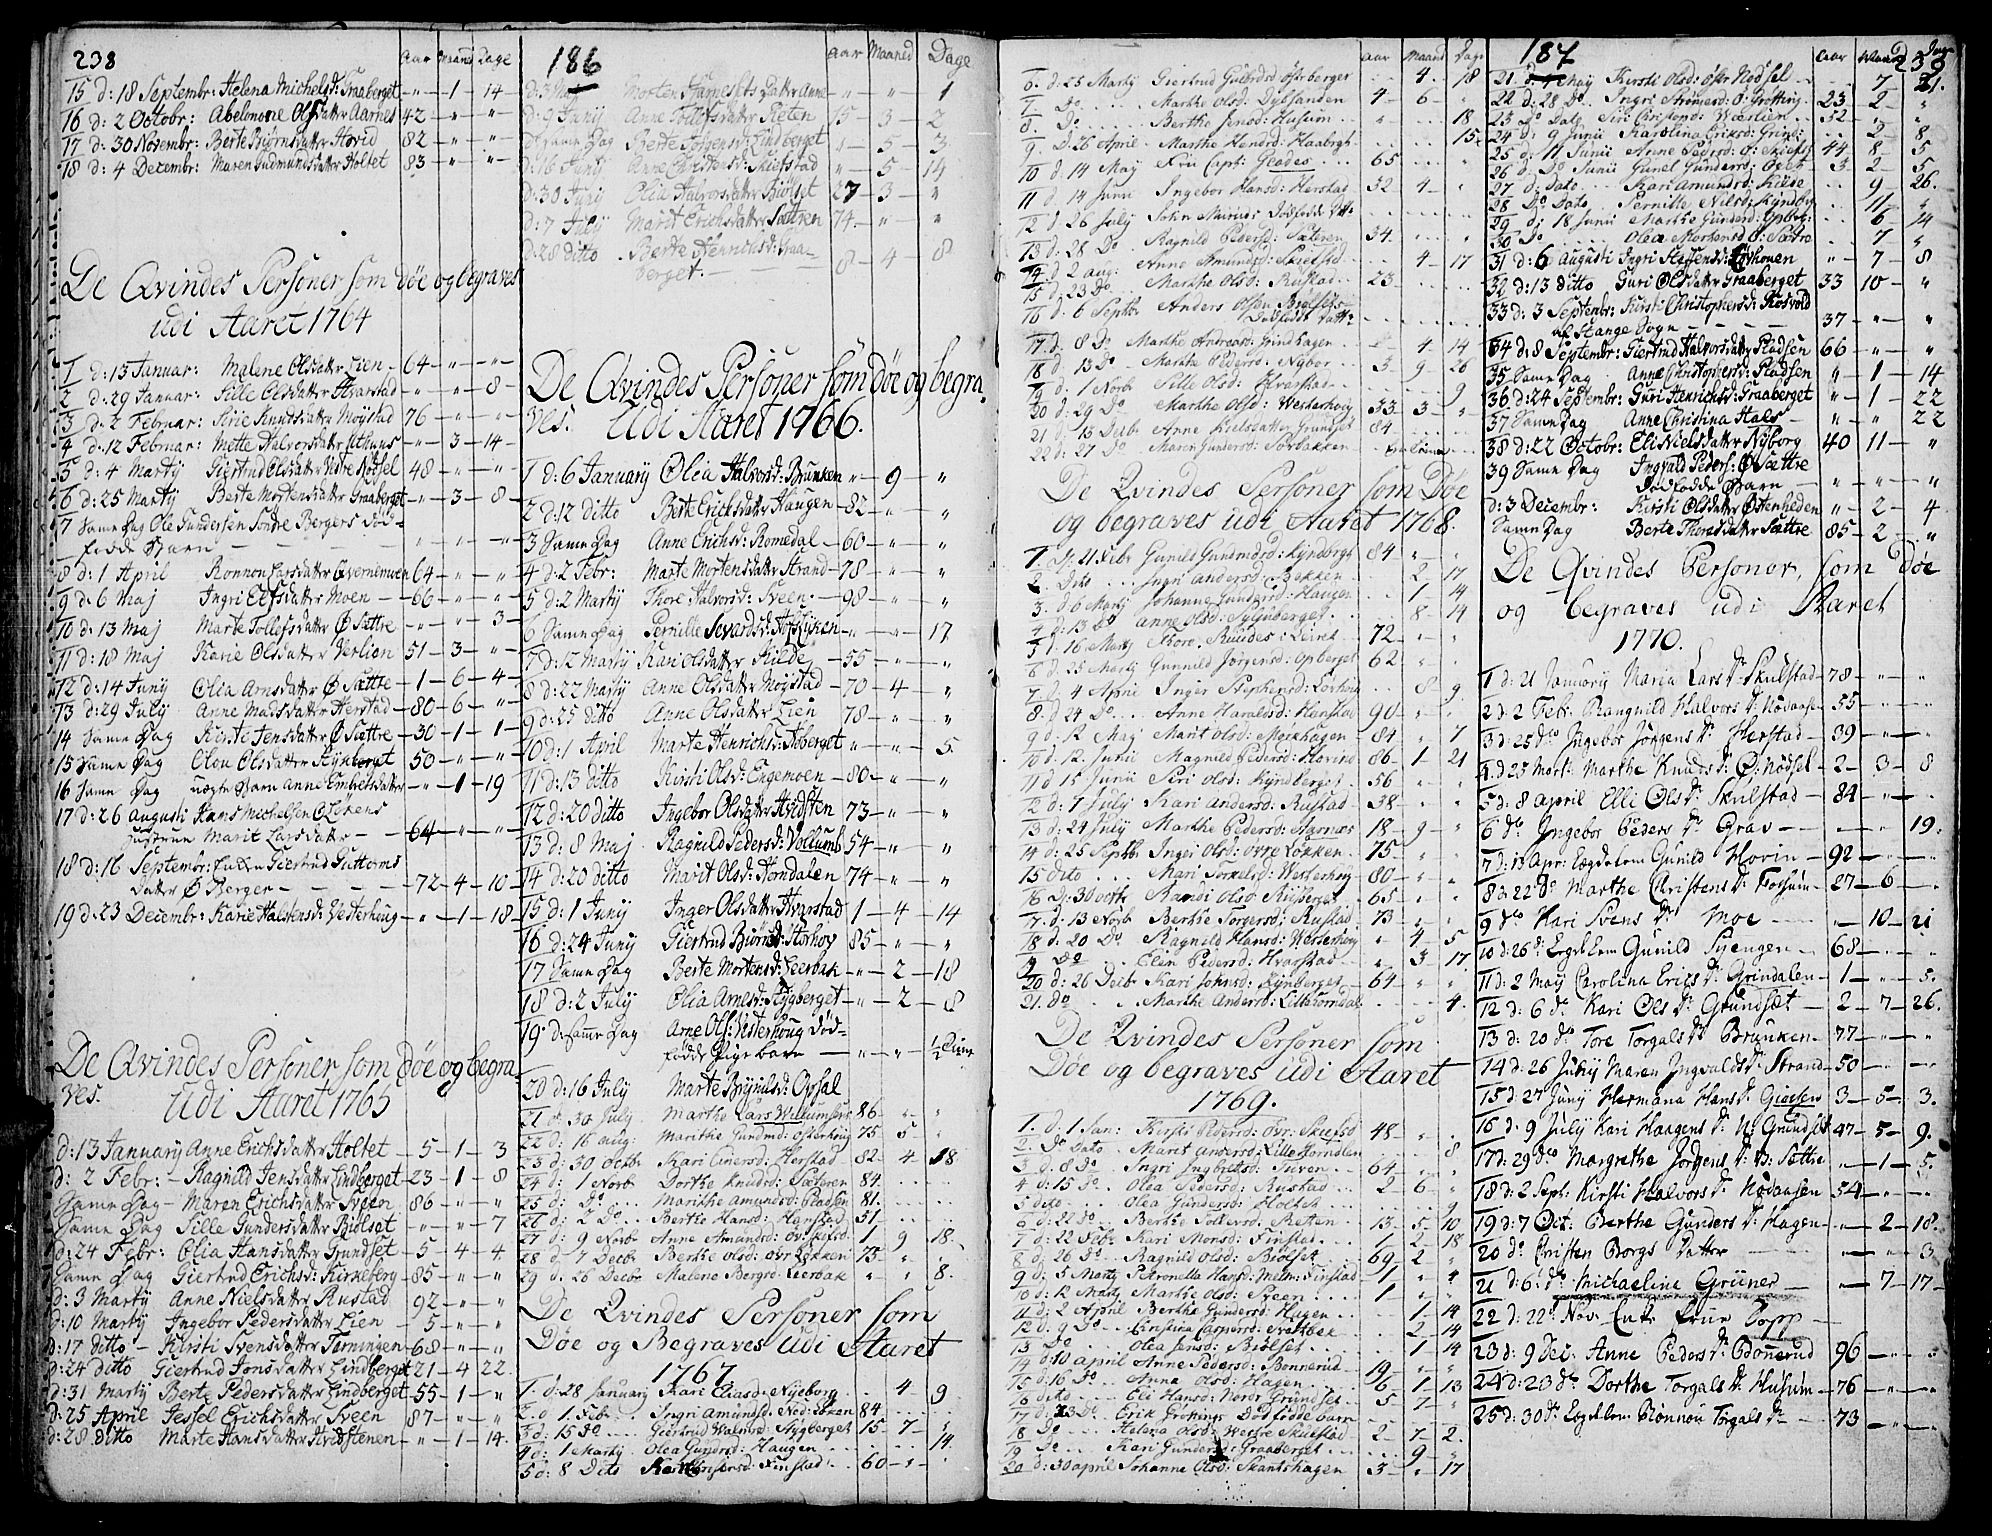 238
Aar Maaned Dage
15 d: 18 Septembr: Helena Michelsd: Graaberget - " - 1 - 14 -
16 d: 2 Octobr: Abelonone Olsdatter Aarnes 42 - " - " -
17 d: 30 Novembr: Berte Biørnsdatter Hovid 82 - " - " -
18 d: 4 Decembr: Maren Gudmundsdatter Holtet 83 - " - " -
De Qvindes Personer som døe og begraves
udi Aaret 1764
1 d: 13 Januar: Malene Olsdatter Lien - 64 - " - " -
2 d: 29 Januar: Sille Olsdatter Hvarstad - " - " - 8 -
3 d: 2 Februar: Sirie Knudsdatter Møystad 76 - " - " -
4 d: 12 Februar: Mette Halvorsdatter - " - 3 - 14 -
5 d: 4 Marty Giertrud Olsdatter Nødsel 48 - " - " -
6 d: 25 Marty Berte Mortensdatter Graaberget - " - 3 - 8 -
7 Samme Dag Ole Gundersen Søndre Bergers død-
fødde Barn - " - " - "
8 d: 1 April Ronnou Larsdatter Qvernemoen 64 - " - "
9 d: 6 Maj Ingri Elfsdatter Moen - 66 - " - "
10 d: 13 Maj Marte Tollefsdatter Ø Sættre - " - " - 3 -
11 d: 18 Maj Karie Olsdatter Verlien 51 - 3 - "
12 d: 14 Juny Olia Arnsdatter Ø Sættre - 1 - 6 - 4 -
13 d: 29 July Anne Madsdatter Herstad - 80 - 6 - "
14 Samme Dag Kirste Jensdatter Ø Sættre - 30 - 1 - 1 -
15 Samme Dag Olou Olsdatter Stykberget 50 - " - "
16 Samme Dag uægte Barn Anne Embretsdatter - " - 1 - 19
17 d: 26 Augusti Hans Michelsen Øllekens
Hustrue Marit Larsdatter - 64 - " - "
18 d: 16 Septembr: Enken Giertrud Guttorms
datter Ø Berger - 72 - 4 - 10 -
19 d: 23 Decembr: Karie Halstensd: Vesterhaug - " - 1 - 18 -
De Qvindes Personer som døe og begra-
ves. udi Aaret 1765
d: 13 January Anne Erichsdatter Holtet - 5 - 1 - 3
d: 2 Febr: - Ragnild Jensdatter Lindberget - 23 - 1 - 8
Samme Dag - Maren Erichsdatter Sveen - 86 - " - "
Samme Dag Sille Gundersdatter Biølset - " - " - 7
d: 24 Febr: Olia Hansdatter Grundset - 5 - 4 - 4
Samme Dag Giertrud Erichsd: Kirkeberg - 85 - " - "
d: 3 Marty Anne Nielsdatter Rustad 92 - " - "
d: 10 Marty Ingebor Pedersdatter Lien - 5 - " - "
d: 17 ditto - Kirsti Svensdatter Terningen 68 - " - "
d: 24 ditto Giertrud Jonsdatter Lindberget 21 - 4 - 22
d: 31 Marty Berte Pedersdatter Lindberget 55 - 1 - "
d: 25 April Jessel Erichsdatter Sveen 87 - " - "
d: 28 ditto Marte Hansdatter Hvidstenen - " - 1 - 14 -
186
Aar Maaned Dage
Morten datter Anne - " - " - 1
d: 9 Juny Anne Tollefsdatter Ræten 15 - 3 - 2
Samme Dag Berte Jørgensd: Lindberget " - 5 - 3
d: 16 Juny Anne Christensd: Skiefstad " - 5 - 14
d: 30 Juny Olia Halvorsdatter Biølset 27 - 3 - "
d: 7 July Marit Erichsdatter Sætren 74 - " - "
d: 28 ditto Berte Henrichsd: Graa-
berget. - 8 - 4 - 8
De Qvindes Personer som døe og begra-
ves. Udi Aaret 1766.
1 d: 6 January Olia Halvorsd: Brunken " - 9 - "
2 d: 12 ditto Berte Erichsdatter Haugen - 82 - " - "
3 Samme Dag Anne Erichsd: Romedal - 60 - " - "
4 d: 2 Febr: Marte Mortensdatter Strand - 78 - " - "
5 d: 2 Marty Thore Halvorsd: Sveen - 98 - " - "
6 Samme Dag Pernille Sevardsd: - " - " - 17
7 d: 12 Marty Kari Olsdatter Kilde - 55 - " - "
8 d: 22 Marty Anne Olsdatter Møystad - 70 - 4 - "
9 d: 25 ditto Anne Olsdatter Lien 78 - " - "
10 d: 1 April Marte Henrichsd: Aaberget - " - " - 5
11 d: 13 ditto Kirsti Olsd: Engemoen - 80 - " - "
12 d: 20 ditto Ingebor Olsdatter Hvidsten 73 - " - "
13 d: 8 Maj Ragnild Pedersd: Vollumb 54 - " - "
14 d: 20 ditto Marit Olsd: Horndalen 74 - " - "
15 d: 1 Juny Inger Olsdatter Hvarstad 1 - 4 - 14
16 d: 24 Juny Giertrud Biørnsd: Storhov 85 - " - "
17 Samme Dag Berte Mortensd: Leerbak - " - 2 - 18
18 d: 2 July Olia Arnesd: Stygberget - " - 2 - 8
19 d: Samme Dag Arne Ols: Vesterhoug død-
fødde Pige barn - " - " - ½ Time
20 d: 16 July Marte Brynilsd: Opsal
21 d: 30 July Marthe Lars Willumsens 86 - " "
22 d: 16 aug: Marithe Gundmd: Østerhoug 75 - 5 - "
23 d: 30 octbr Kari Einersd: Herstad 82 - 4 - 18
24 d: 1 Novb Dorthe Knudsd: Sæteren 84.
25 d: Do Marithe Amundsd: Pladsen 81.
26 d: 2 Do Berthe Hansd: Harstad 51
27 d: 9 Novbr Anne Amundsd: øv: Skiefst: 1 9 18
28 d 7 Decbr Berthe Olsd: ovr Løkken 73
29 d. 26 Decbr Malene Bergsd: Leerbak " " 8.
De Qvindes Personer som
Døe og Begraves Udi Aaret
1767.
1. d: 28 January Kari Eliasd: Nyeborg 4 9
2. d 1. Febr. Ingri Amundsd: Nod: Løken 84
3 d: 15 Do Giertrud Stygberget 15 - 7 -
4 d: 1 Marty Olea Gundersd: Haugen 14
5 d: 8 Dito Kari Finstad: 60
Aar Maaned Dage
6. d: 25 Marty Giertrud Gulbrdsd Øster berger 4. 18
7. Do Marthe Olsd: Dybsanden 4 - 6
8. Do Berthe Jensd: Husum 18
9. D. 26 April Marthe Hendrsd: Haabergh 15.
10 d 14 May Fru Capt: Glades 65
11 d. 14 Juni Ingebor Hansd: Herstad 32 4
12 d 26 July Dødfødde Datter
13 d. 28 Do Ragnild Pedersd: Sæteren 34.
14 d 2 aug: Anne Amundsd: Skiefsted 4 - 17
15 d. 23 Do Marthe Olsd: Rustad 23
16 d. 6 Septbr Anders Olsen
Dødfødde Datter
17. d. 8 Do Marthe Andreasd: Grindhagen 4 14
18 d. 13 Do Martha Pedersd: Nyebor 3 9 26
19 d: 1 Novbr Sille Olsd: Hvarstad 9
20 d: 29 Do Marthe Olsd: Westerhoug 33 3
21 d. 13 Decbr Anne Nielsdatter Grundset 84
22 d: 27 Do Maren Gundersd: Sørbakken
De Qvindes Personer som Døe
og begraves udi Aaret 1768.
1. D. 21 Febr Gunild Gundmdsd: Kyndbergh 84
2. Dato Ingri Andersd: Bakken 2 17
3. d: 6 Marty Johanne Gundersd: Haugen 1 14
4 d: 13 Do Anne Olsd: Stygberget 8 14
5 d. 16 Marty Thore Knudsd: Leiret 72
6 d. 25 Marty Gunnild Jørgensd: Opberget 62
7. d. 4 April Inger Stephensd: 8 9
8. d: 24 Do Anne Haraldsd: Herstad 90
9 d. 12 May Marit Olsd: Meickhagen 84 7
10 d. 12 Junii Magnild Pedersd: Hovind 86 1 21
11 d 15 Junii Siri Olsd: Kyndberget 56
12 d: 7 July Kari Andersd: Rustad 38
13 d: 24 July Marthe Pedersd: Aarnæs 18 9
14 d: 25 Septbr Ingri Olsd: øvre Løkken 75
15 dito Mari Torkelsd: Westerhoug 80
16 D: 30 octbr Randi Olsd: 65
17. d. 13 Novb Berthe Torgersd: Rustad 73
18 d. 20 Do Ragnild Hansd: Westerhoug 4 5
19 Do Elin Pedersd: Hvarstad 3 17
20 d: 26 Decbr Kari Johnsd: Kynberget 64
21. Do Marthe Andersd: Lillehorndal 4.
De Qvindes Personer som
Døe og begraves udi Aaret
1769.
1. d: 1 Jan: Kirsti Pedersd: øvr: Skiefsd 48
2. Do Dato Marit Andersd: Lille Horndlen 8
3 d. 8 Do Ingri Ingbretsd: Tuven 64
4 d: 15 Do Olea Pedersd: Rustad 2 6
5 dito Olea Gundersd: Holtet 9
6 d: 22 Do Berthe Tollevsd: Retten 13 5 10
7 d: 22 Febr Kari Monsd: Finstad 1 2 18
8 d 26 Do Ragnild Olsd: Biølset 69 2
9 d: 5 Marty Petronella Hansd: Melm: Finstad 1
10 d: 12 Marty Marthe Olsd: Sveen 1
11 d: 2 April Berthe Gundersd: Hagen 1 14
12 d. 9 Do Christina Caspersd: Svartbek 2 14
13 Do Olea Jensd: Biølset 1 14
14 d: 10 April Anne Pedersd: Bonnerud 19
15 d: 16 Do Anna Olsd: Hagen 6 1 13
16 dito Eli Hansd: Nordr Grundset 5 7
17 d: 23 Do Erik Grøtting Dødfødde barn
18 Do Helena Olsd: Westre Skiestad 2 7 2
19 Do Kari Gundersd: Graaberget 9
20 d: 30 april Johanne Olsd: Skantshagen 3 17
187
Aar Maaned Dage
239
21 d. May Kirsti Olsd: Østr Nødsel 7 21.
22 d: 28 Do Ingri Strømersd: Ø: Grøtting 23 2
23 Do Dato Siri Christophsd: Wæstlien 52
24 d: 9 Junii Karolina Eriksd: Grind: 2 8
25 d: 11 Junii Anne Pedersd: Ø: Skiefst: 44 8 5
26 d: Do Junii Gunel Gundersd: Opset 3 2 5
27 d: Dato Kari Amundsd: Kilde 9 26.
28 Do Dato Pernille Nilsd: Kyndby 11
29 d: 18 Junii Marthe Gundersd: Opbrg: 6 14
30 Do Olea Mortensd: Ø: Sættre 7
31 d: 6 Augusti Ingri Steffensd: Løvhouen " - 7 - 8
32 d: 13 ditto Guri Olsdatter Graaberget 33 10 - "
33 d: 3 Septembr: Kirsti Christophersd: Skosvold
af Stange Sogn - 37 - " - "
34 d: 8 Septembr: Giertrud Halvorsdatter Pladsen 66 - " - "
35 Samme Dag Anne Christophersd: Pladsen " - 1 - 14
36 d: 24 Septembr: Guri Henrichsd: Graaberget " - 1 - 22
37 Samme Dag Anne Christina Hals " - " 22
38 d: 22 Octobr: Eli Nielsdatter Nyborg 40 11 - "
39 Samme Dag Ingvald Peders: Ø Sættre
Dødfødde Barn - " - " - "
d: 3 Decembr: Kirsti Olsdatter Østenheden " - 2 - 4
Samme Dag Berte Thoresdatter Sættre 85 - 2 - "
De Qvindes Personer, som Døe
og begraves udi Aaret
1770.
1 d: 21 January Maria Lars Dr Skulstad - 78 -
2 d: 2 Febr. Rangnild Halvors Dr Nødaasen 55 -
3 d: 25 do Ingebor Jørgens Dr Herstad - 39 -
4 d. 25 Mart. Marthe Knuds Dr Ø: Nødsel - 2 - 3 - 8
5 d: 8 April Elli Ols Dr Skulstad - 84 -
6 do Ingebor Peders Dr Grav - 19.
7 d: 15 Apr: Eegdelem Gunild Hovin - 92 -
8 d: 22 do Marthe Christens Dr Forsum - 27 - 6 -
9 do Kari Svens Dr Moe - 10 - 21
10 d: 26 do Eegdelem Gunild Svengen - 68 -
11 d: 2 May Carolina Erics Dr Grindalen - 1 - 5.
12 d: 6 do Kari Ols Dr Grundset - 2 - 7 - 26.
13 d: 20 do Tore Torgals Dr Brunken - 77 -
14 d: 26 July Maren Ingvalds Dr Strand - 50 -
15 d: 27 Juny Hermana Hans Dr Giæsen 3 - 5 - 3.
16 d: 9 July Kari Haagens Dr N: Grundset 47 - 5 - 9.
17 d: 29 do Margrethe Jørgens Dr Ø: Sættre - 1 - 5.
18 d: 2 Sept: Kirsti Halvors Dr Nødaasen - 54 -
19 d: 7 Oct: Berthe Gunders Dr Hagen - 2 - 18.
20 do Cristen Borgs Datter - 3
21 d: 6: do Michaeline Grüner - 7 - 17 -
22 d: 22 Nov. Enke Frue Topp -
23 d: 9 Dec. Anne Peders Dr Bonnerud 96 -
24 d: 23 do Dorthe Torgals Dr Husum - 76 -
25 d: 30 do Eegdelem Rønnou Torgals Dr - 73 -